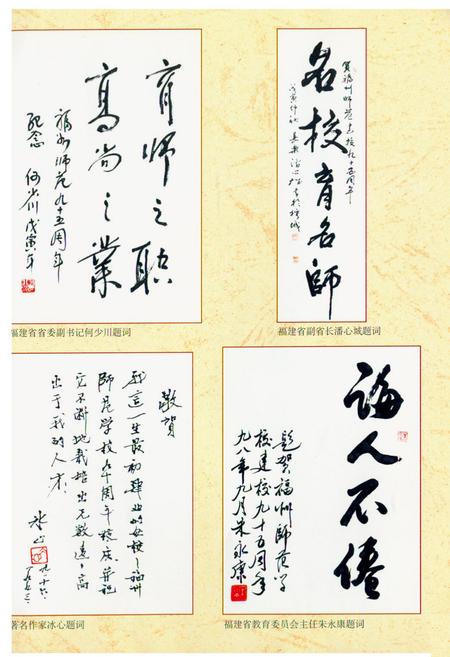 育师之职
高尚之業
福州师范九十五周年
纪念 何少川 戊寅年
福建省省委副书记何少川题词
賀福州师范建校九十五周年
名校育名師
戊寅仲秋 長樂潘心城書於榕城
福建省副省长潘心城题词
敬賀
我這一生最初肄业的母校~福州
師范学校九十周年校庆,并祝
它不断地栽培出无数遠遠高
出于我的人才。
冰心
著名作家冰心题词
诲人不倦
题贺福州師范学
校建校九十五周年
九八年九月朱永康
福建省教育委员会主任朱永康题词